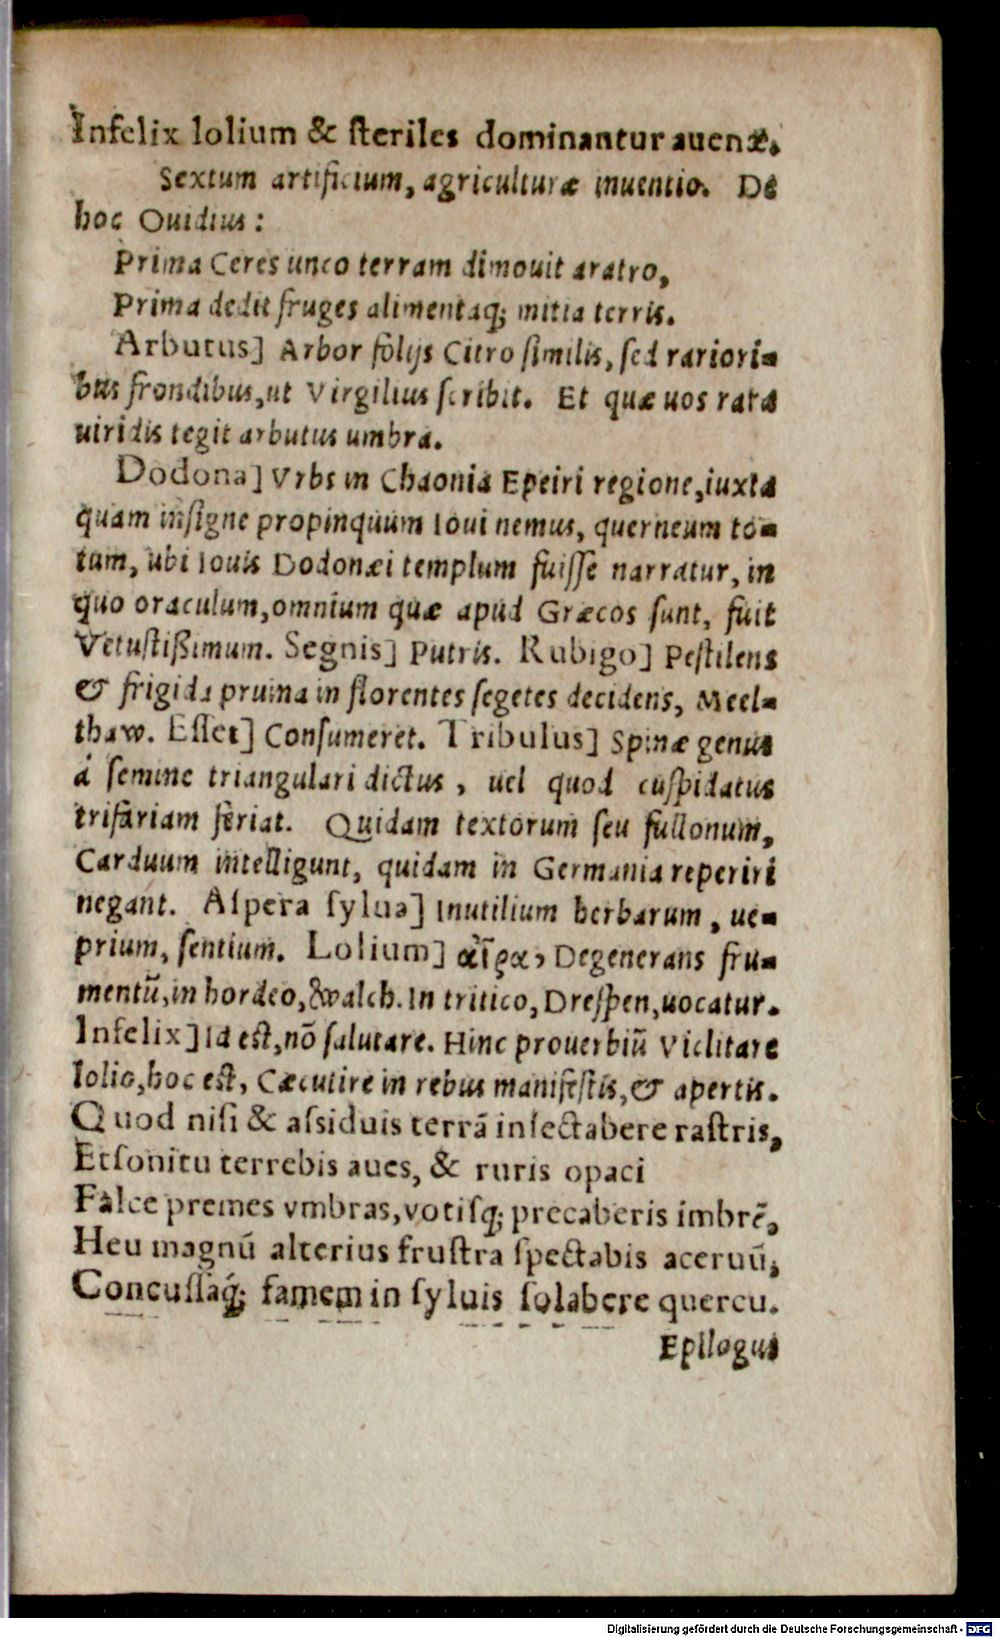 Infelix lolium & ſteriles dominantur auenæ.
Sextum artificium, agriculturæ inuentio. De
hoc Ouidius:
Prima Ceres unco terram dimouit aratro,
Prima dedit fruges alimentaq; mitia terris.
Arbutus] Arbor folijs Citro ſimilis, ſed rariori-
bus frondibus, ut Virgilius ſcribit. Et quæ uos rara
uiridis tegit arbutus umbra.
Dodona] Vrbs in Chaonia Epeiri regione, iuxta
quam inſigne propinquum Ioui nemus, querneum to-
tum, ubi Iouis Dodonæi templum fuiſſe narratur, in
quo oraculum, omnium quæ apud Græcos ſunt, fuit
Vetuſtißimum. Segnis] Putris. Rubigo] Peſtilens
& frigida pruina in florentes ſegetes decidens, Meel-
thaw. Eſſet] Conſumeret. Tribulus] Spinæ genus
á ſemine triangulari dictus, uel quod cuſpidatus
trifariam feriat. Quidam textorum ſeu fullonum,
Carduum intelligunt, quidam in Germania reperiri
negant. Aſpera ſylua] Inutilium herbarum, ue-
prium, ſentium. Lolium] αἶρα, Degenerans fru-
mentū, in hordeo, &walch. In tritico, Dreſpen, uocatur.
Infelix] Id eſt, nō ſalutare. Hinc prouerbiū Victitare
lolio, hoc eſt, Cæcutire in rebus manifeſtis, & apertis.
Quod niſi & aſsiduis terrā inſectabere raſtris,
Et ſonitu terrebis aues, & ruris opaci
Falce premes vmbras, votiſq; precaberis imbrē,
Heu magnū alterius fruſtra ſpectabis aceruū;
Concuſſaq́; famem in ſyluis ſolabere quercu.
Epilogus
Digitalisierung gefördert durch die Deutsche Forschungsgemeinschaft - DFG